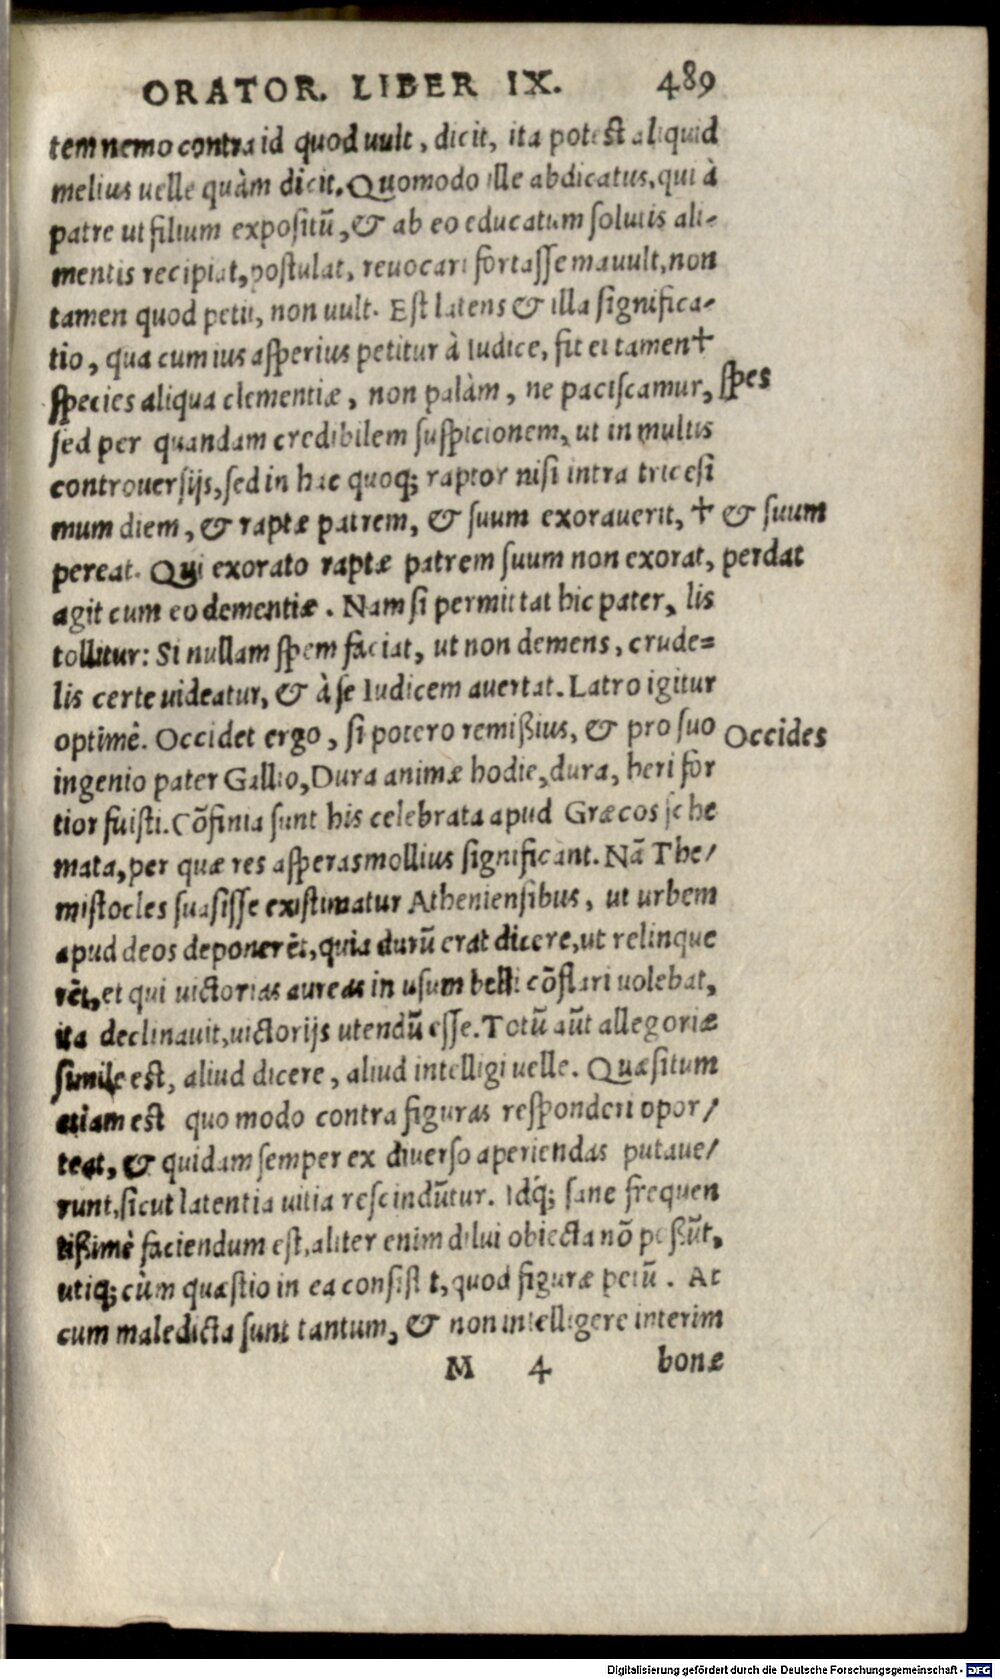 ORATOR. LIBER IX. 489
tem nemo contra id quod uult, dicit, ita potest aliquid
melius uelle quàm dicit. Quomodo ille abdicatus, qui à
patre ut filium expositū, & ab eo educatum solutis ali-
mentis recipiat, postulat, reuocari fortasse mauult, non
tamen quod petit, non uult. Est latens & illa significa-
tio, qua cum ius asperius petitur à Iudice, fit ei tamen ✝
species aliqua clementiæ, non palàm, ne paciscamur, spes
sed per quandam credibilem suspicionem, ut in multis
controuersijs, sed in hac quoq; raptor nisi intra tricesi
mum diem, & raptæ patrem, & suum exorauerit, ✝ & suum
pereat. Qui exorato raptæ patrem suum non exorat, perdat
agit cum eo dementiæ. Nam si permittat hic pater, lis
tollitur: Si nullam spem faciat, ut non demens, crude=
lis certe uideatur, & à se Iudicem auertat. Latro igitur
optimè. Occidet ergo, si potero remißius, & pro suo Occides
ingenio pater Gallio, Dura animæ hodie, dura, heri for
tior fuisti. Cōfinia sunt his celebrata apud Græcos sche
mata, per quæ res asperas mollius significant. Nā The/
mistocles suasisse existimatur Atheniensibus, ut urbem
apud deos deponerēt, quia durū erat dicere, ut relinque
rēt, et qui uictorias aureas in usum belli cōflari uolebat,
ita declinauit, uictorijs utendū esse. Totū aūt allegoriæ
simile est, aliud dicere, aliud intelligi uelle. Quæsitum
etiam est quo modo contra figuras responderi opor/
teat, & quidam semper ex diuerso aperiendas putaue/
runt, sicut latentia uitia rescindūtur. Idq́; sane frequen
tißimè faciendum est, aliter enim dilui obiecta nō poßūt,
utiq; cùm quæstio in ea consistit, quod figuræ petū. At
cum maledicta sunt tantum, & non intelligere interim
M 4 bonæ
Digitalisierung gefördert durch die Deutsche Forschungsgemeinschaft - DFG